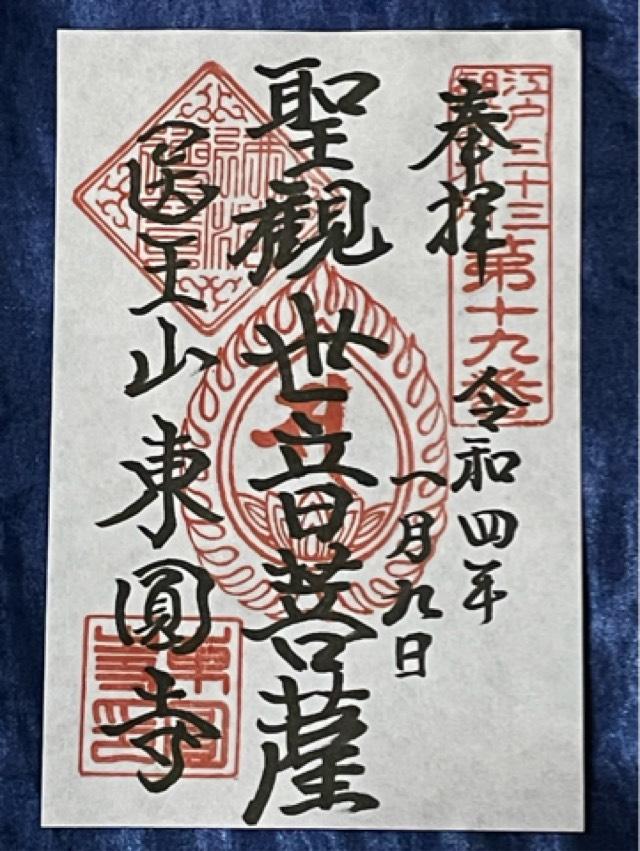 江戸三十三
観音札所
第十九番
奉拝
令和四年
一月九日
聖観世音菩薩
医王山東圓寺